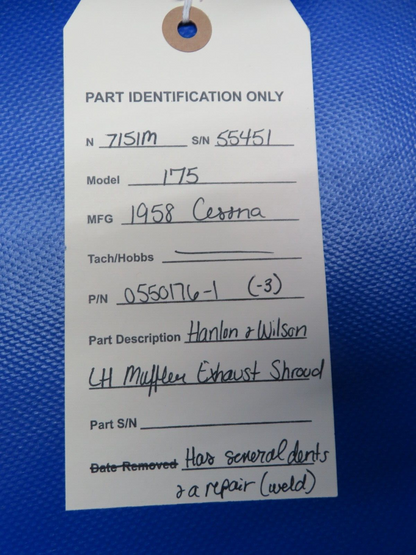 PART IDENTIFICATION ONLY
N 7151M S/N 55451
Model 175
MFG 1958 Cessna
Tach/Hobbs
P/N 0550176-1 (-3)
Part Description Hanlon & Wilson
LH Muffler Exhaust Shroud
Part S/N
Date Removed Has several dents
& a repair (weld)